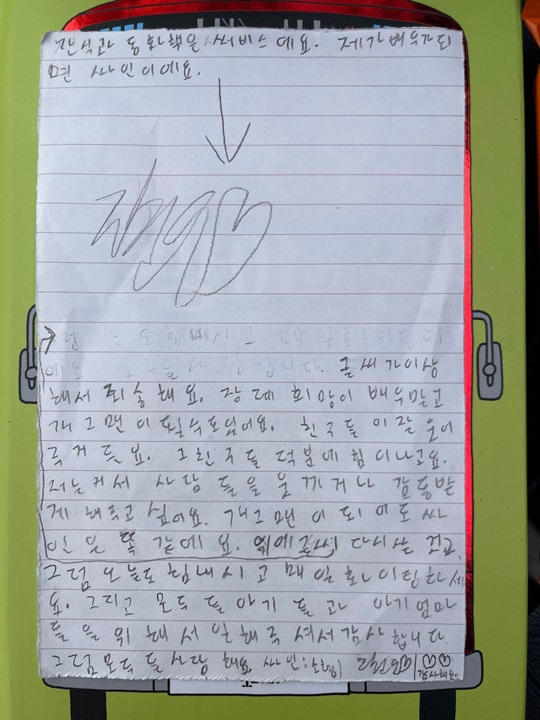 간식과 동화책은 써비스에요. 제가 배우가 되
면 싸인이에요.
글씨가 이상
해서 죄송해요. 장례희망이 배우말고
개그맨이 될 수도 있어요. 친구들이 잘 웃어
주거든요. 그 친구들 덕분에 힘이 나고요.
저는 커서 사람들을 웃기거나 감동받
게 해주고 싶어요. 개그맨이 되어도 싸
인은 똑같에요. 위에 글씨 다시 쓴 건
그럼 오늘도 힘내시고 매일 화이팅하세
요. 그리고 모두들 아기들과 아기엄마
들을 위해서 일해주셔서 감사합니다.
그럼 모두들 사랑해요 싸인:
감사해요.